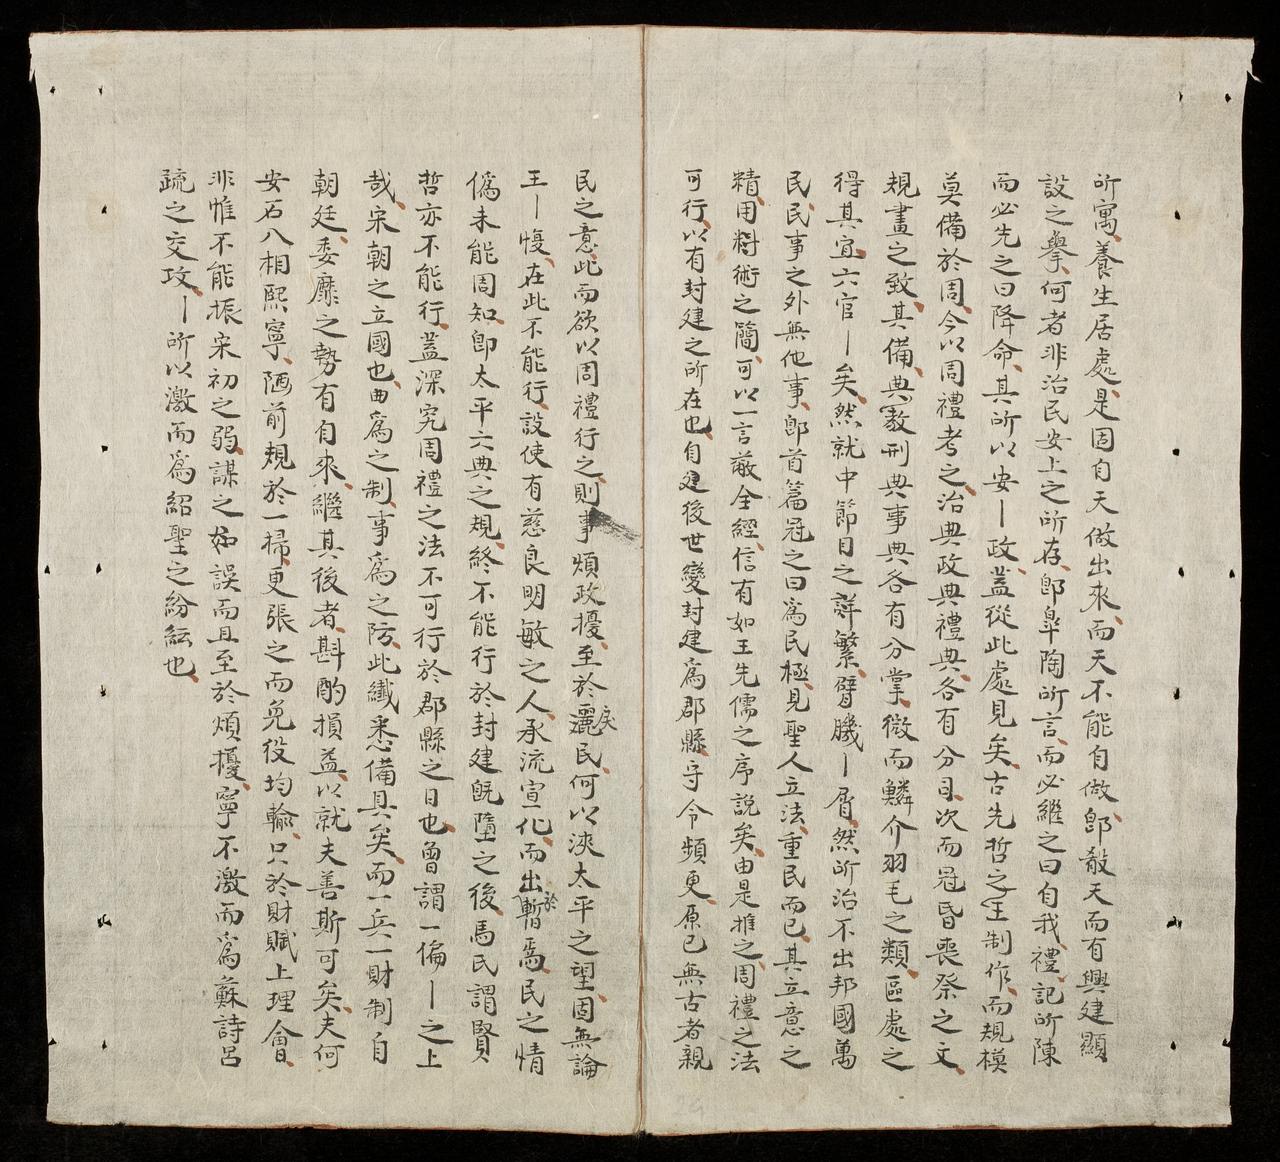 所寓養生居處是固自天做出來而天不能自做卽敵天而有興建顯
設之擧何者非治民安上之所存卽皐陶所言而必繼之曰自我禮記所陳
而必先之曰降命其所以安丨政蓋從此處見矣古先哲之王制作而規模
莫備於周今以周禮考之治典政典禮典各有分目次而冠昏喪祭之文
規畫之致其備典敎刑典事典各有分掌微而鱗介羽毛之類區處之
得其宜六官丨矣然就中節目之詳繁臂機丨屑然所治不出邦國萬
民民事之外無他事卽首篇冠之曰爲民極見聖人立法重民而已其立意之
精用術之簡可以一言蔽全經信有如王先儒之序說矣由是推之周禮之法
可行以有封建之所在也自建後世變封建爲郡縣守令頻更原已無古者親
民之意此而欲以周禮行之則事煩政擾至於戾民何以浹太平之望固無論
王丨慢在此不能行設使有慈良明敏之人承流宣化而出於暫焉民之情
僞未能周知卽太平六典之規終不能行於封建旣墮之後馬氏謂賢
哲亦不能行蓋深究周禮之法不可行於郡縣之日也曾謂一偏丨之上
哉宋朝之立國也曲爲之制事爲之防此纖悉備具矣而一兵一財制自
朝廷委靡之勢有自來繼其後者斟酌損益以就夫善斯可矣夫何
安石入相熙寧陋前規於一掃更張之而免役均輸只於財賦上理會
非惟不能振宋初之弱謀之如誤而且至於煩擾寧不激而爲蘇詩呂
疏之交攻丨所以激而爲紹聖之紛紜也